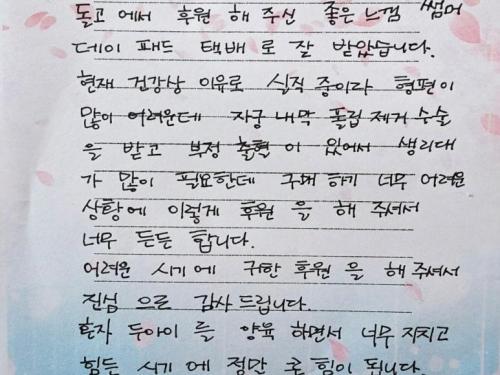 돌고 에서 후원 해 주신 좋은느낌 썸머
데이 패드 택배 로 잘 받았습니다.
현재 건강상 이유로 실직 중이라 형편이
많이 어려운데 자궁 내막 폴립 제거 수술
을 받고 부정 출혈 이 있어서 생리대
가 많이 필요한데 구매 하기 너무 어려운
상황에 이렇게 후원 을 해 주셔서
너무 든든 합니다.
어려운 시기 에 귀한 후원 을 해 주셔서
진심 으로 감사 드립니다.
혼자 두아이 를 양육 하면서 너무 지치고
힘든 시기 에 정말 큰 힘이 됩니다.